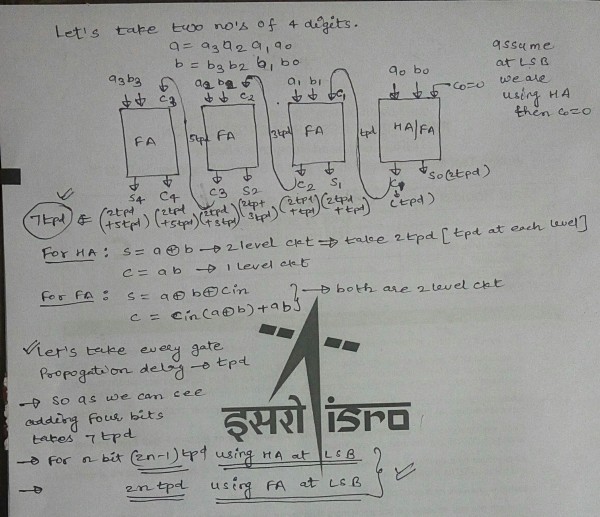 Let's take two no's of 4 digits.
a = a3 a2 a1 a0
b = b3 b2 b1 b0
assume
at LSB
we are
using HA
then C0=0
a3 b3 C3 a2 b2 C2 a1 b1 C1 a0 b0 C0=0
FA 5tpd FA 3tpd FA tpd HA/FA
S4 C4 C3 S2 C2 S1 C1 S0(2tpd)
(tpd)
7tpd ⇐ (2tpd+5tpd) (2tpd+5tpd) (2tpd+3tpd) (2tpt+3tpd) (2tpd+tpd) (2tpd+tpd)
For HA : S = a⊕b → 2 level ckt ⇒ take 2tpd [tpd at each level]
C = ab → 1 level ckt
For FA : S = a⊕b⊕Cin
C = Cin(a⊕b)+ab } → both are 2 level ckt
✓Let's take every gate
Propogation delay → tpd
→ So as we can see
adding four bits
takes 7tpd
इसरो isro
→ For n bit (2n-1)tpd using HA at LSB
→ 2n tpd using FA at LSB } ✓